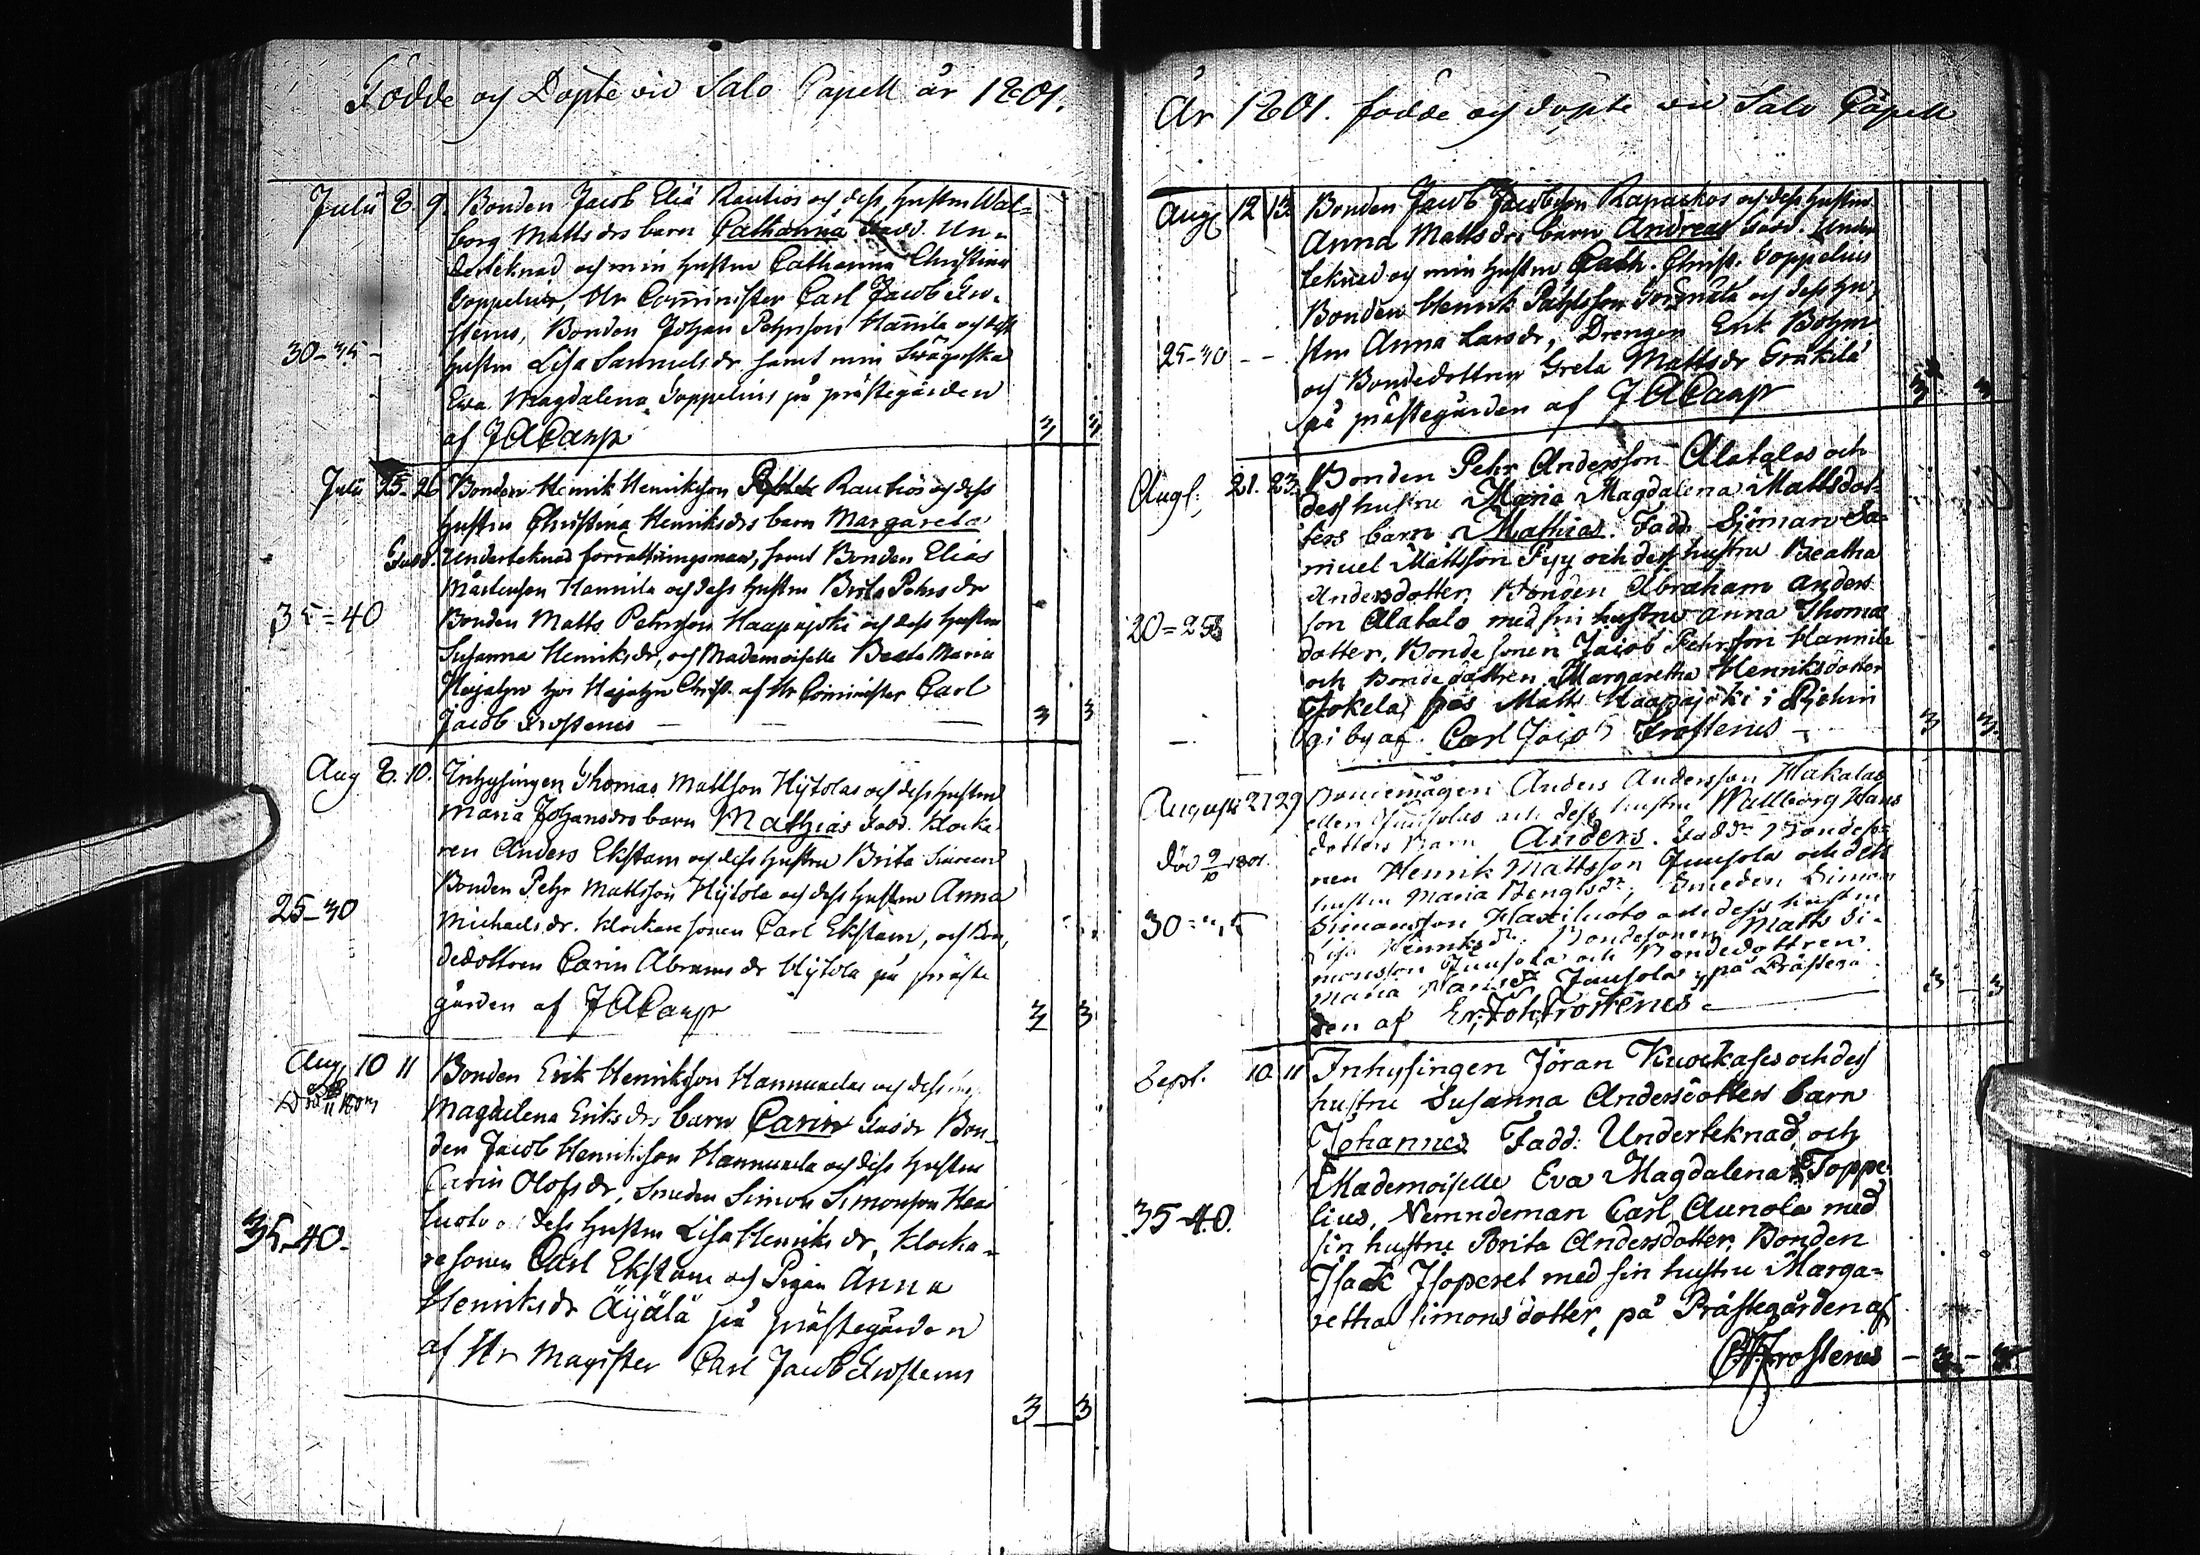 Födde och Döpte vid Salo Capell år 1801.
Julii 8. 9. Bonden Jacob Eliæ Rautios och dess hustru Wal=
borg Mattsdrs barn Catharina Fadd. Un=
derteknad och min hustru Catharina Christina
Toppelius, Hr Comminister Carl Jacob Fro-
sterus, Bonden Johan Pehrsson Hannila och dess
30-35 - hustru Lisa Samuelsdr samt min Swägerska
Ewa Magdalena Toppelius på prästegården
af JACajan 3 3
Julii 25. 26 Bonden Henrik Henriksson Rautios och dess
hustru Christina Henriksdrs barn Margareta
Fadd. Underteknad förrättningsman, samt Bonden Elias
Mårtensson Hannila och dess hustru Brita Pehrsdr
35=40 Bonden Matts Pehrsson Haapajoki och dess hustru
Susanna Henriksdr, och Mademoiselle Beata Maria
af Hr Comminister Carl
Jacob Frosterus — — — 3 3
Aug 8. 10. Inhysingen Thomas Mattsson Hÿtolas och dess hustru
Maria Johansdrs barn Mathias Fadd. Klocka-
ren Anders Ekstam och dess hustru Brita
Bonden Pehr Mattsson Hÿtola och dess hustru Anna
25-30 Michaelsdr. Klockaresonen Carl Ekstam, och Bon-
dedottren Carin Abramsdr Hÿtola på präste
gården af JACajan 3 3
Aug. 10 11 Bonden Erik Henriksson Hannuxelas och dess
Magdalena Eriksdrs barn Carin Faddr Bon-
den Jacob Henriksson Hannuxela och dess hustru
Carin Olofsdr, Smeden Simon Simonsson Haxi
35-40. luoto dess hustru Lisa Henriksdr, Klocka-
resonen Carl Ekstam och Pigan Anna
Henriksdr Äijälä på prästegården
af Hr Magister Carl Jacob Frosterus
3 3
År 1801. födde och döpte vid Salo Capell
Aug 12 13 Bonden Jacob Jacobsson Rapackos och dess hustru
Anna Mattsdrs barn Andreas Fadd. Under
teknad och min hustru Cath. Christ. Toppelius
Bonden Henrik Påhlsson och dess hu-
25-30 - - stru Anna Larsdr, Drengen Erik Bohm
och Bondedottren Greta Mattsdr Gräkilä
på prästegården af JACajan 3 3
Augt; 21. 23. Bonden Pehr Andersson Alatalos och
dess hustru Maria Magdalena Mattsdot-
ters barn Mathias. Fadd. Sjöman Sa-
muel Mattsson Pyy och dess hustru Beatha
Andersdotter, Bonden Abraham Anders
20=25 son Alatalo med sin hustru Anna Thomæ
dotter, Bondesonen Jacob Pehrsson Hannila
och Bondedottren Margaretha Henriksdotter
Jokela, hos Matts Haapajoki i Pjehin
gi by af Carl Jacob Frosterus - 3 3.
August 27 29 Bondemågen Anders Andersson Hakalas
eller Juusolas och dess hustru Wallborg Hans
dotters Barn Anders. Faddr Bondeso-
död 9/10 1801. nen Henrik Mattsson Juusola och dess
hustru Maria Bengtsdr, Smeden Simon
30= Simonsson Haxiluoto och dess hustru
Lisa Henriksdr. Bondesonen Matts Si-
monsson Juusola och Bondedottren
Maria Hansdr Juusola, på Prästegå
den af Er: Joh: Frosterus - 3 - 3
Sept. 10 11 Inhysingen Jöran Kuockases och dess
hustru Susanna Andersdotters barn
Johannes Fadd: Underteknad och
Mademoiselle Eva Magdalena Toppe-
35-40. lius, Nemndeman Carl Aunola med
sin hustru Brita Andersdotter, Bonden
Isack Isoperet med sin hustru Marga=
retha Simonsdotter, på Prästegården af
CJFrosterus - 3 - 3